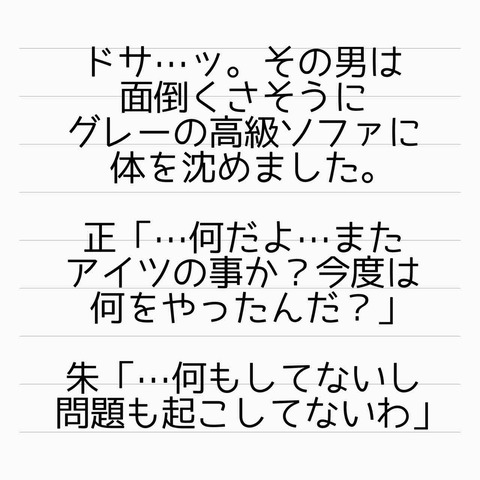 ドサ…ッ。その男は
面倒くさそうに
グレーの高級ソファに
体を沈めました。
正「…何だよ…また
アイツの事か？今度は
何をやったんだ？」
朱「…何もしてないし
問題も起こしてないわ」